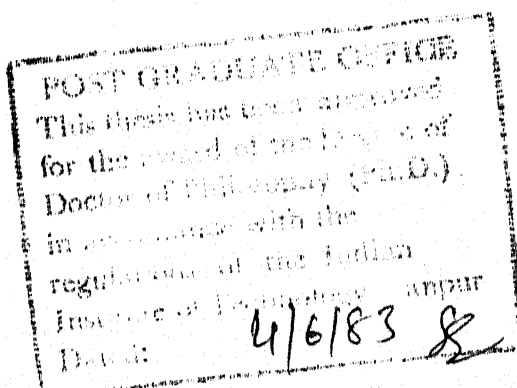 POST GRADUATE OFFICE
This thesis has been approved
for the award of the Degree of
Doctor of Philosophy (Ph.D.)
in accordance with the
regulations of the Indian
Institute of Technology Kanpur
Dated: 4/6/83